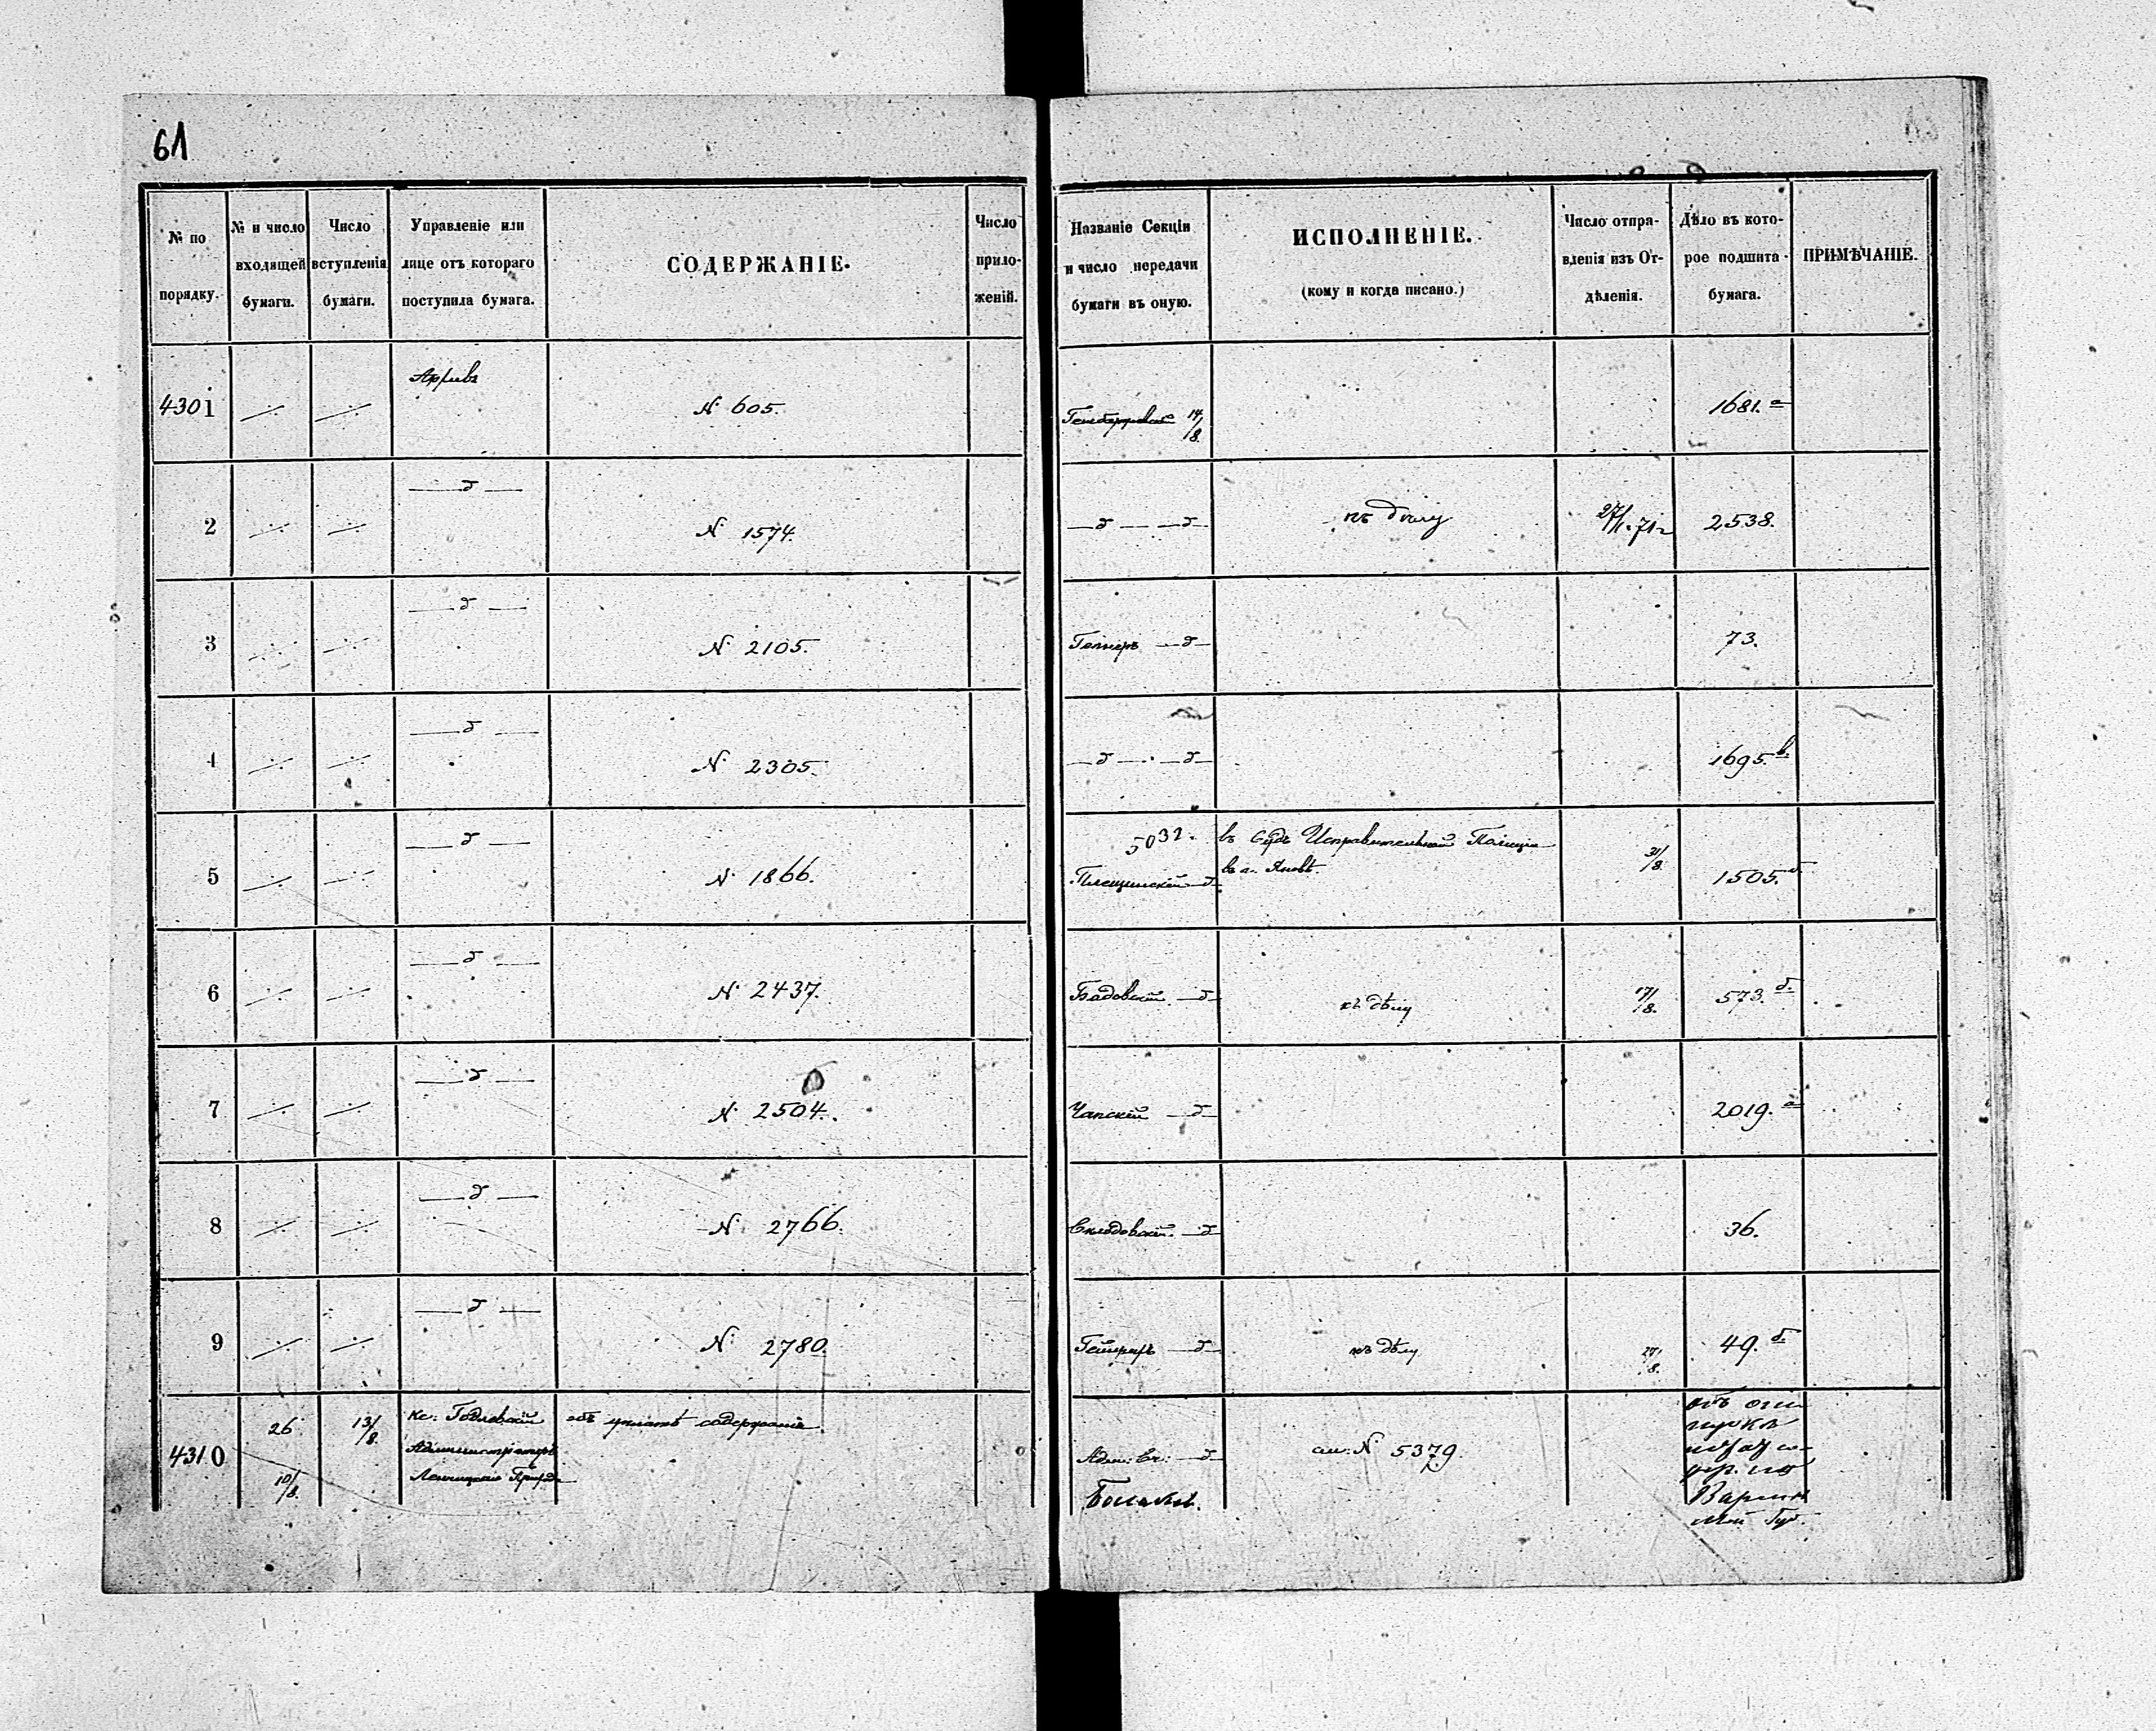 61
№ по порядку.
№ и число входящей бумаги.
Число вступленія бумаги.
Управленіе или лице отъ котораго поступила бумага.
СОДЕРЖАНІЕ.
Число приложеній.
Названіе Секціи и число передачи бумаги въ оную.
ИСПОЛНЕНІЕ.
(кому и когда писано.)
Число отправленія изъ Отдѣленія.
Дѣло въ которое подшита бумага.
ПРИМѢЧАНІЕ.
4301 Архивъ № 605. 14/8 1681.а
2 № 1574. къ дѣлу 27/1 71 г 2538.
3 № 2105. 73.
4 № 2305. 1695.в
5 № 1866. 5032. въ Судъ Исправительной Полиціи 31/8 1505.
въ г. Яновѣ.
6 № 2437. къ дѣлу 17/8. 573.б.
7 № 2504. Чапскій 2019.а
8 № 2766. 36.
9 № 2780. къ дѣлу 49.б.
4310 26 10/8. 13/8. кс. Годлевскій объ уплатѣ содержанія. № 5379.
Администраторъ